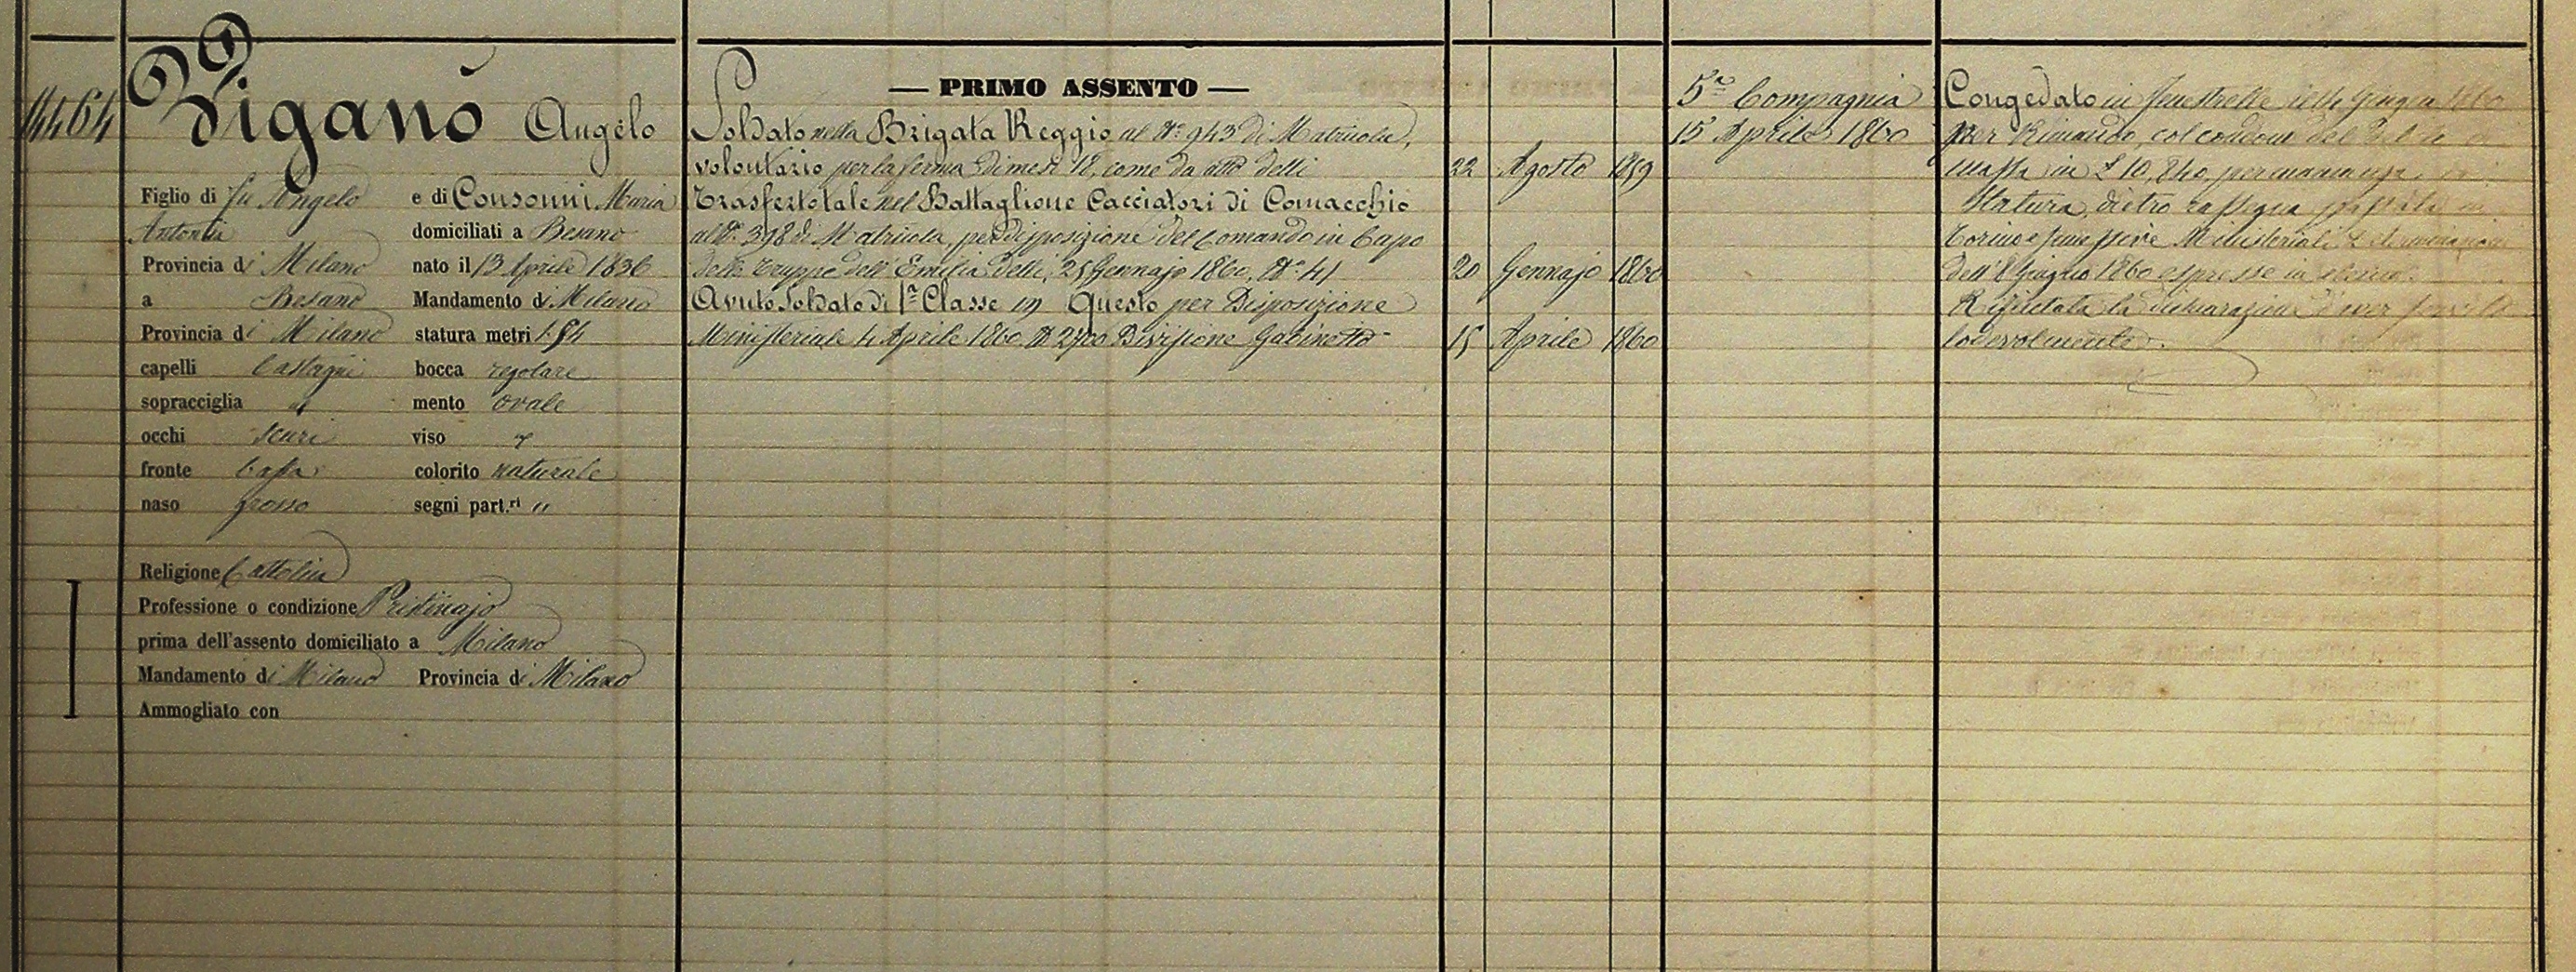 4464
Viganò Angelo
Figlio di fu Angelo e di Consonni Maria
Antonia domiciliati a Besano
Provincia di Milano nato il 13 Aprile 1836
a Besano Mandamento di Milano
Provincia di Milano statura metri 1.54
capelli Castagni bocca regolare
sopracciglia id mento ovale
occhi scuri viso "
fronte bassa colorito naturale
naso grosso segni part.ri "
Religione Cattolica
Professione o condizione Pristinajo
prima dell'assento domiciliato a Milano
Mandamento di Milano Provincia di Milano
Ammogliato con
— PRIMO ASSENTO —
Soldato nella Brigata Reggio al N° 943 di Matricola,
volontario per la ferma di mesi 18, come da atto delli 22 Agosto 1859
Trasferto tale nel Battaglione Cacciatori di Comacchio
al N° 398 di Matricola, per disposizione del Comando in Capo
delle Truppe dell'Emilia delli, 25 Gennajo 1860, N° 41 20 Gennajo 1860
Avuto Soldato di 1ª Classe in Questo per Disposizione
Ministeriale 4 Aprile 1860 N 2700 Divisione Gabinetto 15 Aprile 1860
5ª Compagnia
15 Aprile 1860
Congedato in Fenestrelle il 14 Giugno 1860
per Rimando, col condono del Debito di
massa in £ 10,840 per mancanza di
Statura, dietro rassegna passata in
Torino e Ministeriali Determinazioni
dell'8 Giugno 1860 espresse in elenco.
Rifiutata la dichiarazione d'aver servito
lodevolmente.